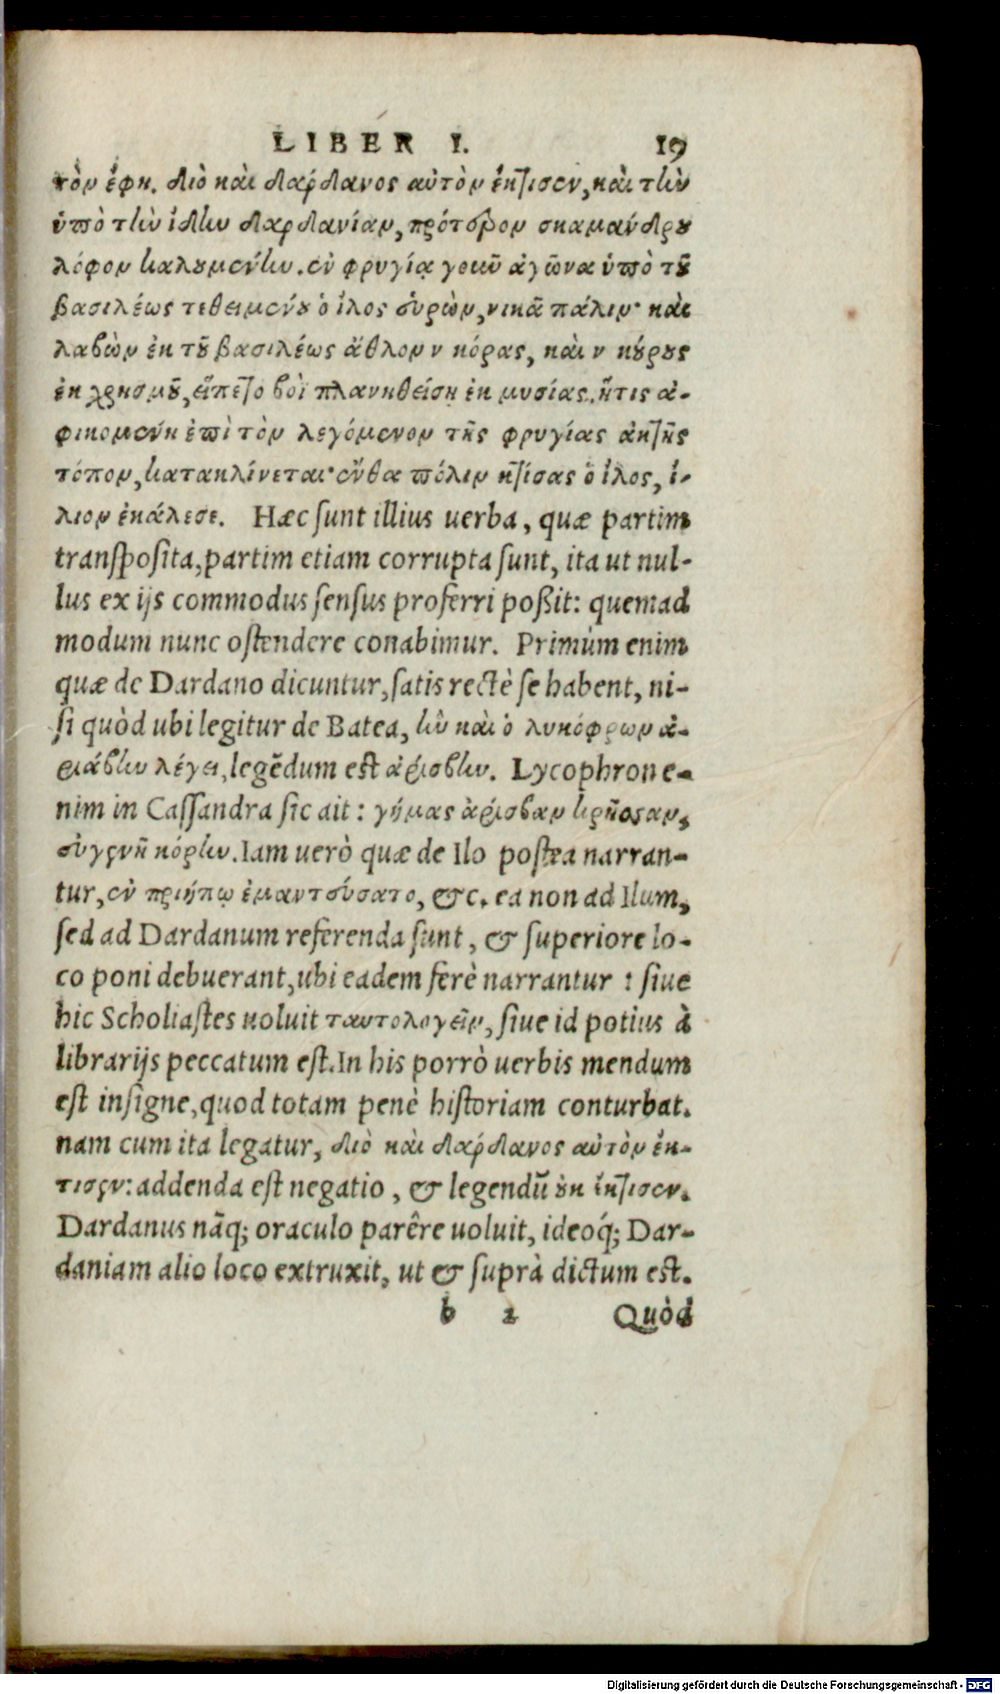 LIBER I. 19
τὸν ἔφη. διὸ καὶ Δάρδανος αὐτὸν ἔκτισεν, καὶ τὴν
ὑπὸ τὴν ἴδην Δαρδανίαν, πρότερον σκαμάνδρου
λόφον καλουμένην. ἐν φρυγίᾳ γοιῶ ἀγῶνα ὑπὸ τοῦ
βασιλέως τεθειμένου ὁ ἶλος εὑρὼν, νικᾶ πάλιν· καὶ
λαβὼν ἐκ τοῦ βασιλέως ἄθλον ν κόρας, καὶ ν κούρους
ἐκ χρησμοῦ, εἵπετο βοῒ πλανηθείσῃ ἐκ μυσίας. ἥτις ἀ-
φικομένη ἐπὶ τὸν λεγόμενον τῆς φρυγίας ἀκτῆς
τόπον, κατακλίνεται· ἔνθα πόλιν κτίσας ὁ ἶλος, ἴ-
λιον ἐκάλεσε. Hæc sunt illius uerba, quæ partim
transposita, partim etiam corrupta sunt, ita ut nul-
lus ex ijs commodus sensus proferri poßit: quemad
modum nunc ostendere conabimur. Primùm enim
quæ de Dardano dicuntur, satis rectè se habent, ni-
si quòd ubi legitur de Batea, ἣν καὶ ὁ λυκόφρων ἀ-
ριάβην λέγει, legēdum est ἀρίσβην. Lycophron e-
nim in Cassandra sic ait: γήμας ἀρίσβαν κρῆσσαν,
συγγενῆ κόρην. Iam uerò quæ de Ilo postea narran-
tur, ἐν πριήπῳ ἐμαντεύσατο, &c. ea non ad Ilum,
sed ad Dardanum referenda sunt, & superiore lo-
co poni debuerant, ubi eadem ferè narrantur: siue
hic Scholiastes uoluit ταυτολογεῖν, siue id potius à
librarijs peccatum est. In his porrò uerbis mendum
est insigne, quod totam penè historiam conturbat.
nam cum ita legatur, διὸ καὶ Δάρδανος αὐτὸν ἔκ-
τισεν: addenda est negatio, & legendū οὐκ ἔκτισεν.
Dardanus nāq; oraculo parêre uoluit, ideoq́; Dar-
daniam alio loco extruxit, ut & suprà dictum est.
b 2 Quòd
Digitalisierung gefördert durch die Deutsche Forschungsgemeinschaft - DFG